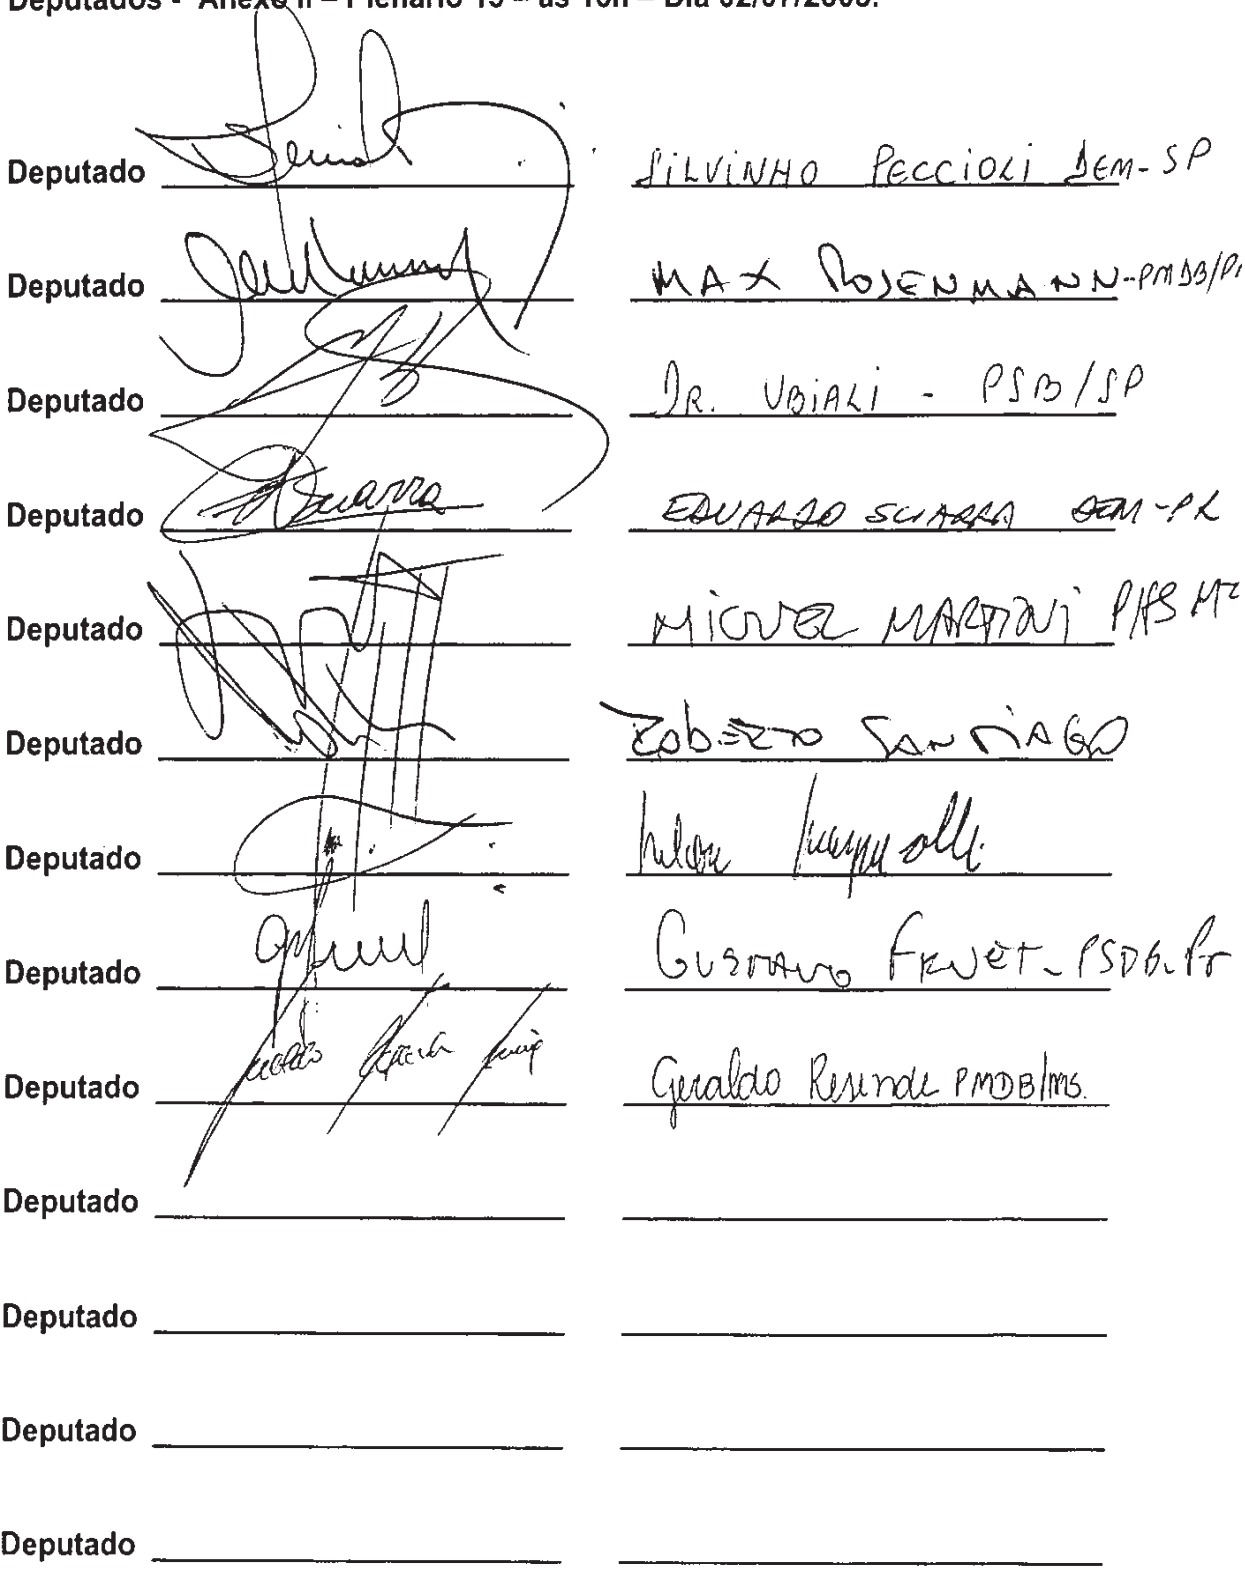 Deputados - Anexo II – Plenário 19 – às 10h – Dia 02/07/2008.
Deputado SILVINHO PECCIOLI DEM-SP
Deputado MAX ROSENMANN-PMDB/
Deputado DR. UBIALI - PSB/SP
Deputado EDUARDO SCIARRA DEM-PR
Deputado MIGUEL MARTINI PHS
Deputado ROBERTO SANTIAGO
Deputado
Deputado GUSTAVO FRUET-PSDB-Pr
Deputado Geraldo Resende PMDB/MS.
Deputado
Deputado
Deputado
Deputado